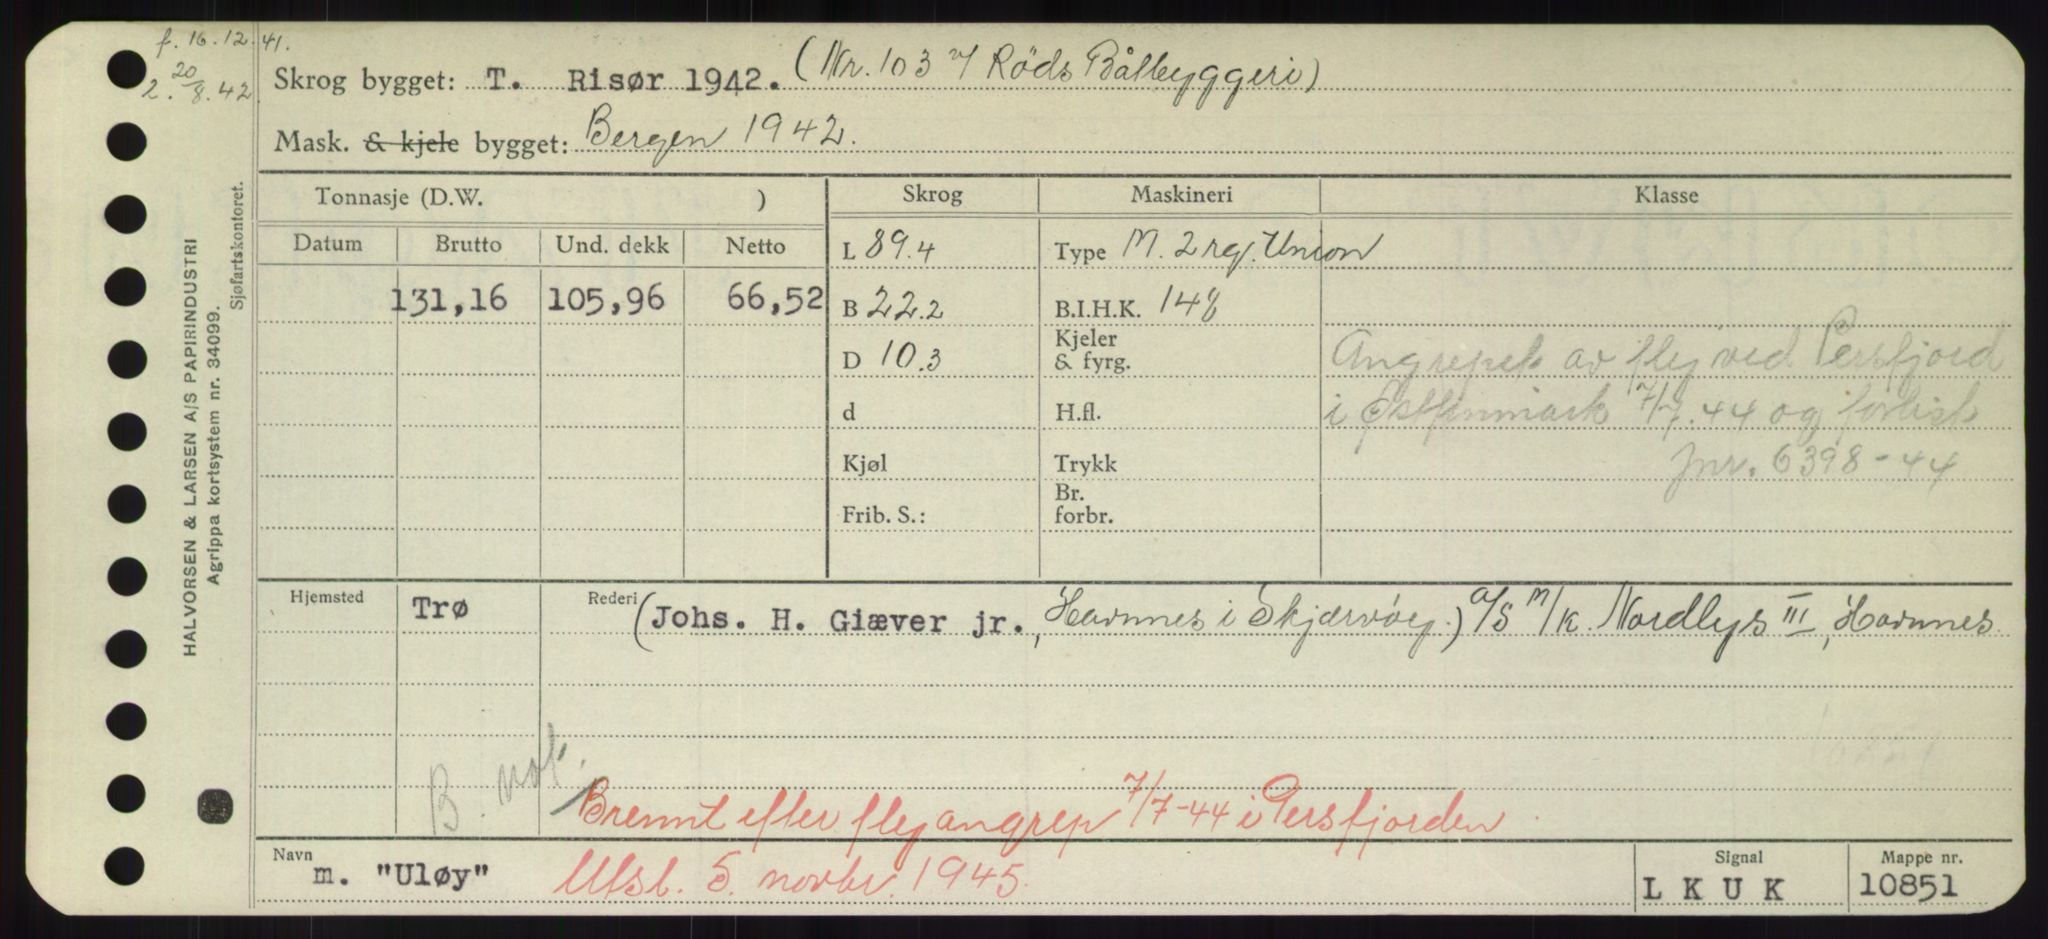 f. 16.12.41.
2. 20/8.42
Skrog bygget: T. Risør 1942. (Nr. 103 v/ Røds Båtbyggeri)
Mask. & kjele bygget: Bergen 1942.
Tonnasje (D.W. ) Skrog Maskineri Klasse
Datum Brutto Und. dekk Netto L 89.4 Type M. 2 rg. Union
131,16 105,96 66,52 B 22.2 B.I.H.K. 148
D 10.3 Kjeler & fyrg. Angrepet av fly ved Persfjord
d H.fl. i Østfinnmark 7/7.44 og forlist
Kjøl Trykk jnr. 6398-44
Frib. S.: Br. forbr.
Hjemsted Trø Rederi (Johs. H. Giæver jr., Havnnes i Skjærvøy.) A/S M/K. Nordlys III, Havnnes.
B. not.
Brennt efter flyangrep 7/7-44 i Persfjorden.
Navn m. "Uløy" Utsl. 5. novbr. 1945. Signal LKUK Mappe nr. 10851
HALVORSEN & LARSEN A/S PAPIRINDUSTRI
Agrippa kortsystem nr. 34099.
Sjøfartskontoret.